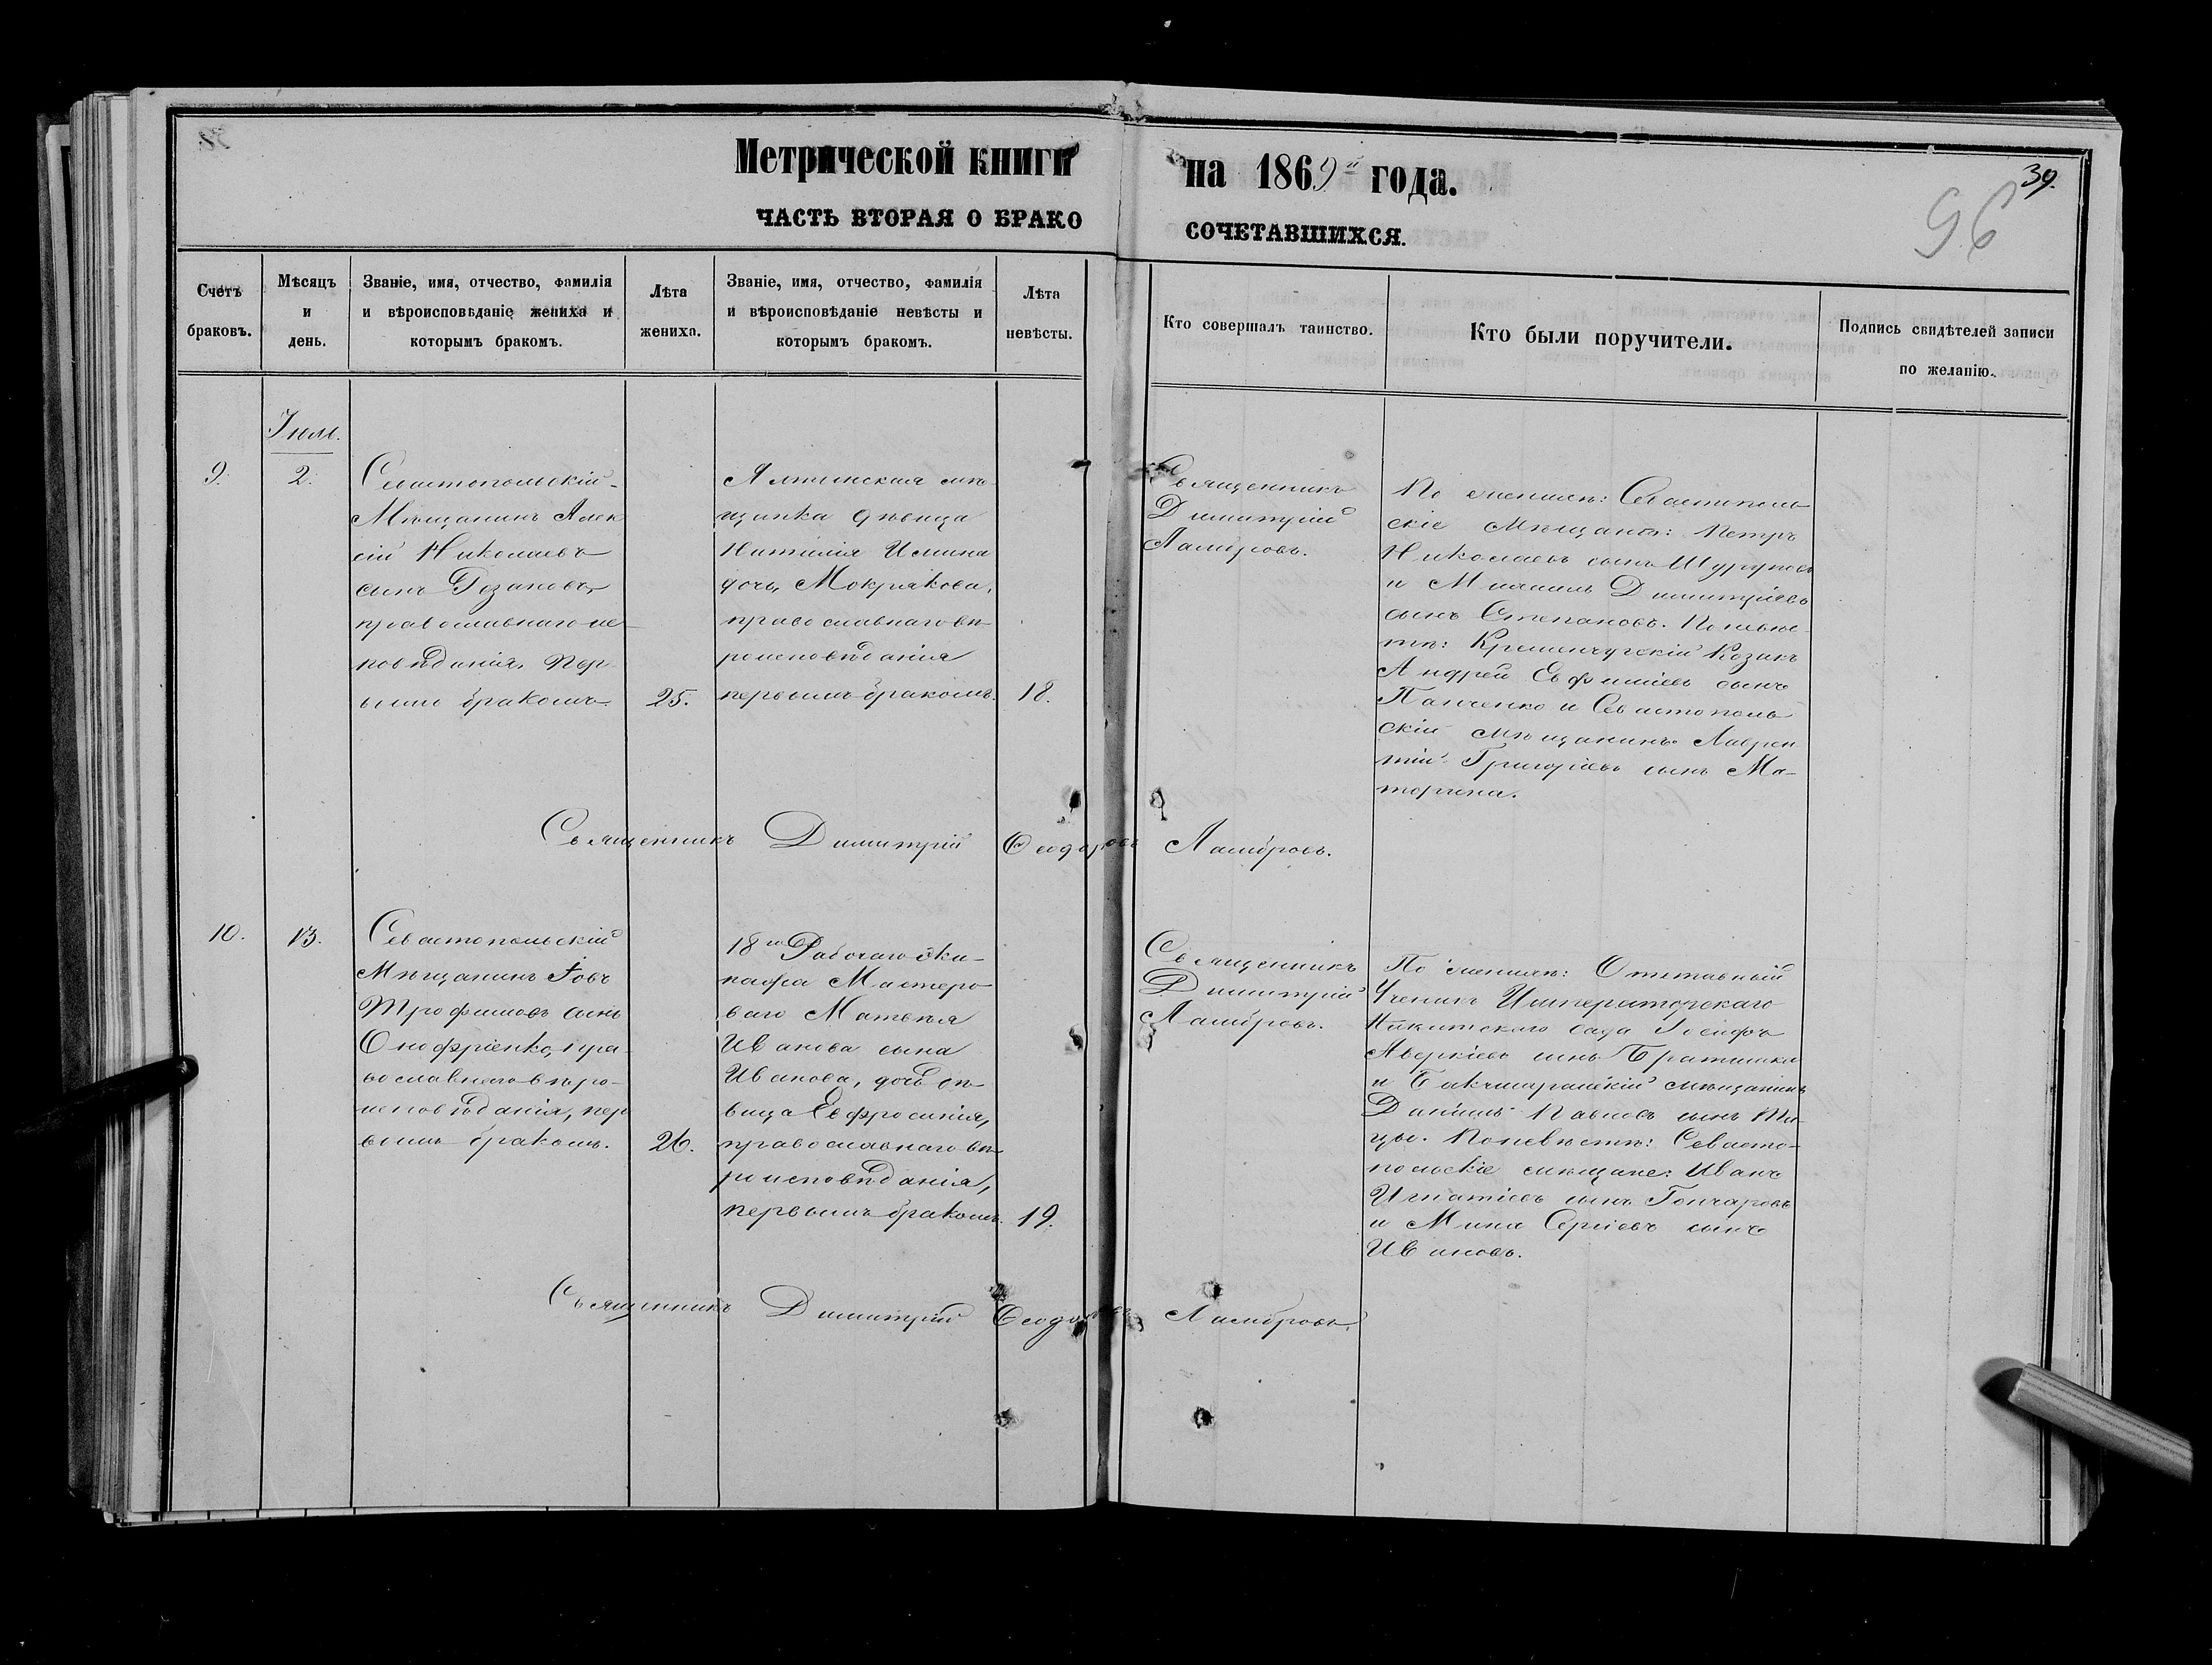 Метрической книги на 1869й года.
39.
96
ЧАСТЬ ВТОРАЯ О БРАКО СОЧЕТАВШИХСЯ.
Счетъ браковъ.
Мѣсяцъ и день.
Званіе, имя, отчество, фамилія и вѣроисповѣданіе жениха и которымъ бракомъ.
Лѣта жениха.
Званіе, имя, отчество, фамилія и вѣроисповѣданіе невѣсты и которымъ бракомъ.
Лѣта невѣсты.
Кто совершалъ таинство.
Кто были поручители.
Подпись свидѣтелей записи по желанію.
9.
2.
Севастопольскій
Мѣщанинъ Алек
сій Николаевъ
сынъ Розановъ,
православнаго ис
повѣданія, Пер
вымъ бракомъ
25.
Ялтинская мѣ
щанка дѣвица
Наталія Ильина
дочь, Мокрякова,
православнаго вѣ
роисповѣданія
первымъ бракомъ.
18.
Священникъ
Димитрій
Ламбровъ.
По женихѣ: Севастополь
скіе Мѣщане: Петръ
Николаевъ сынъ
и Михаилъ Димитріевъ
сынъ Степановъ. По невѣс
тѣ: Кременчугскій Козакъ
Андрей Евфиміевъ сынъ
Панченко и Севастополь
скій мѣщанинъ Лаврен
тій Григоріевъ сынъ Ма
торина.
Священникъ Димитрій Ѳеодоровъ Ламбровъ.
10.
13.
Севастопольскій
Мѣщанинъ Іовъ
Трофимовъ сынъ
Онофріенко, пра
вославнаго вѣро
исповѣданія, пер
вымъ бракомъ.
26.
18го Рабочаго Эки
пажа Мастеро
ваго Матвѣя
Иванова сына
Иванова, дочь дѣ
вица Евфросинія,
православнаго вѣ
роисповѣданія,
первымъ бракомъ.
19.
Священникъ
Димитрій
Ламбровъ.
По женихѣ: Отставный
Ученикъ Императорскаго
Никитскаго сада Іосифъ
Аверкіевъ сынъ
и мѣщанинъ
Даніилъ Павловъ сынъ
По невѣстѣ: Севасто
польскіе мѣщане: Иванъ
Игнатіевъ сынъ Гончаровъ
и Мина Сергіевъ сынъ
Ивановъ.
Священникъ Димитрій Ѳеодоровъ Ламбровъ.